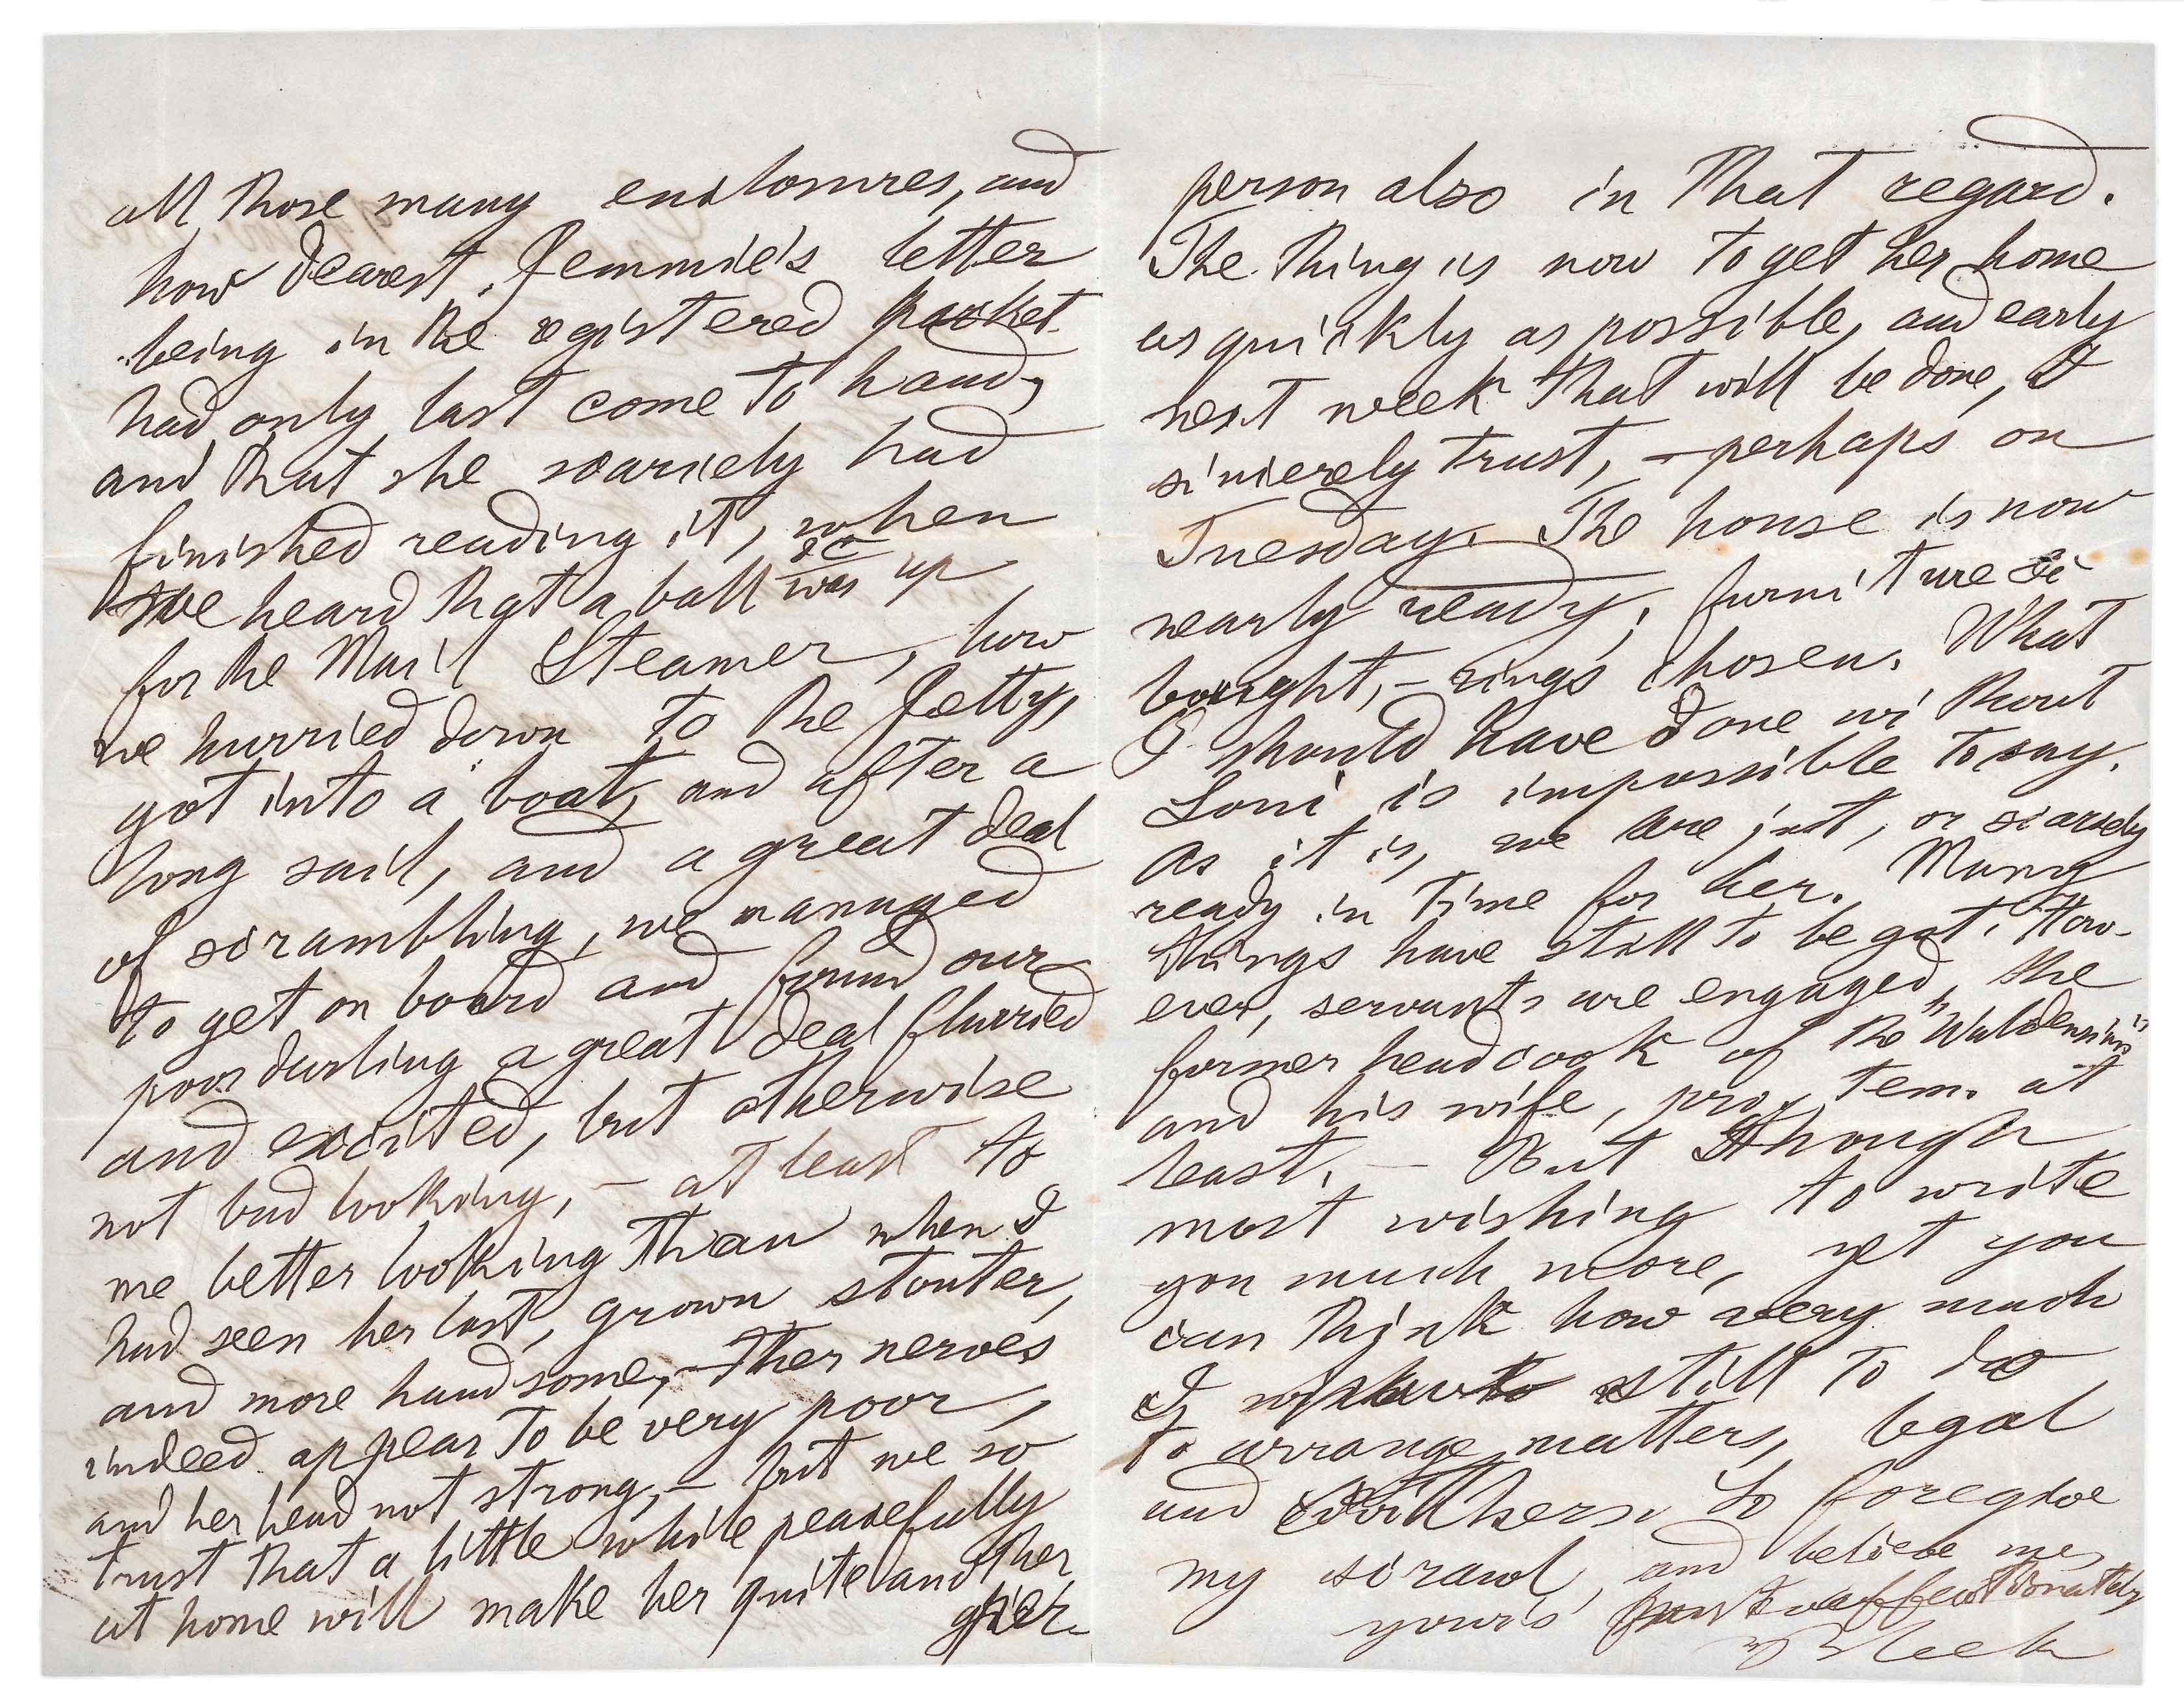 all those many enclosures, and
how dearest Jemmie's letter
being in the registered packet
had only last come to hand,
and that she scarcely had
finished reading it, when
we heard that a ball &c was up
for the Mail Steamer, how
we hurried down to the Jetty,
got into a boat, and after a
long sail, and a great deal
of scrambling, we managed
to get on board and found our
poor darling a great deal flurried
and excited, but otherwise
not bad looking, – at least to
me better looking than when I
had seen her last, grown stouter,
and more handsome, – her nerves
indeed appear to be very poor,
and her head not strong, – but we so
trust that a little while peacefully
at home will make her quite another
person also in that regard.
The thing is now to get her home
as quickly as possible, and early
next week that will be done, I
sincerely trust, – perhaps on
Tuesday. The house is now
nearly ready; furniture &c
bought, – rings chosen. What
I should have done without
Loui is impossible to say.
As it is, we are just, or scarcely
ready in time for her. Many
things have still to be got. How-
ever, servants are engaged, the
former head cook of the "Waldensian"
and his wife, pro. tem. at
least. – But though
most wishing to write
you much more, yet you
can think how very much
I still to do
to arrange matters, legal
and others. So foregive
my scrawl, and believe me
yours affectionately
Bleek